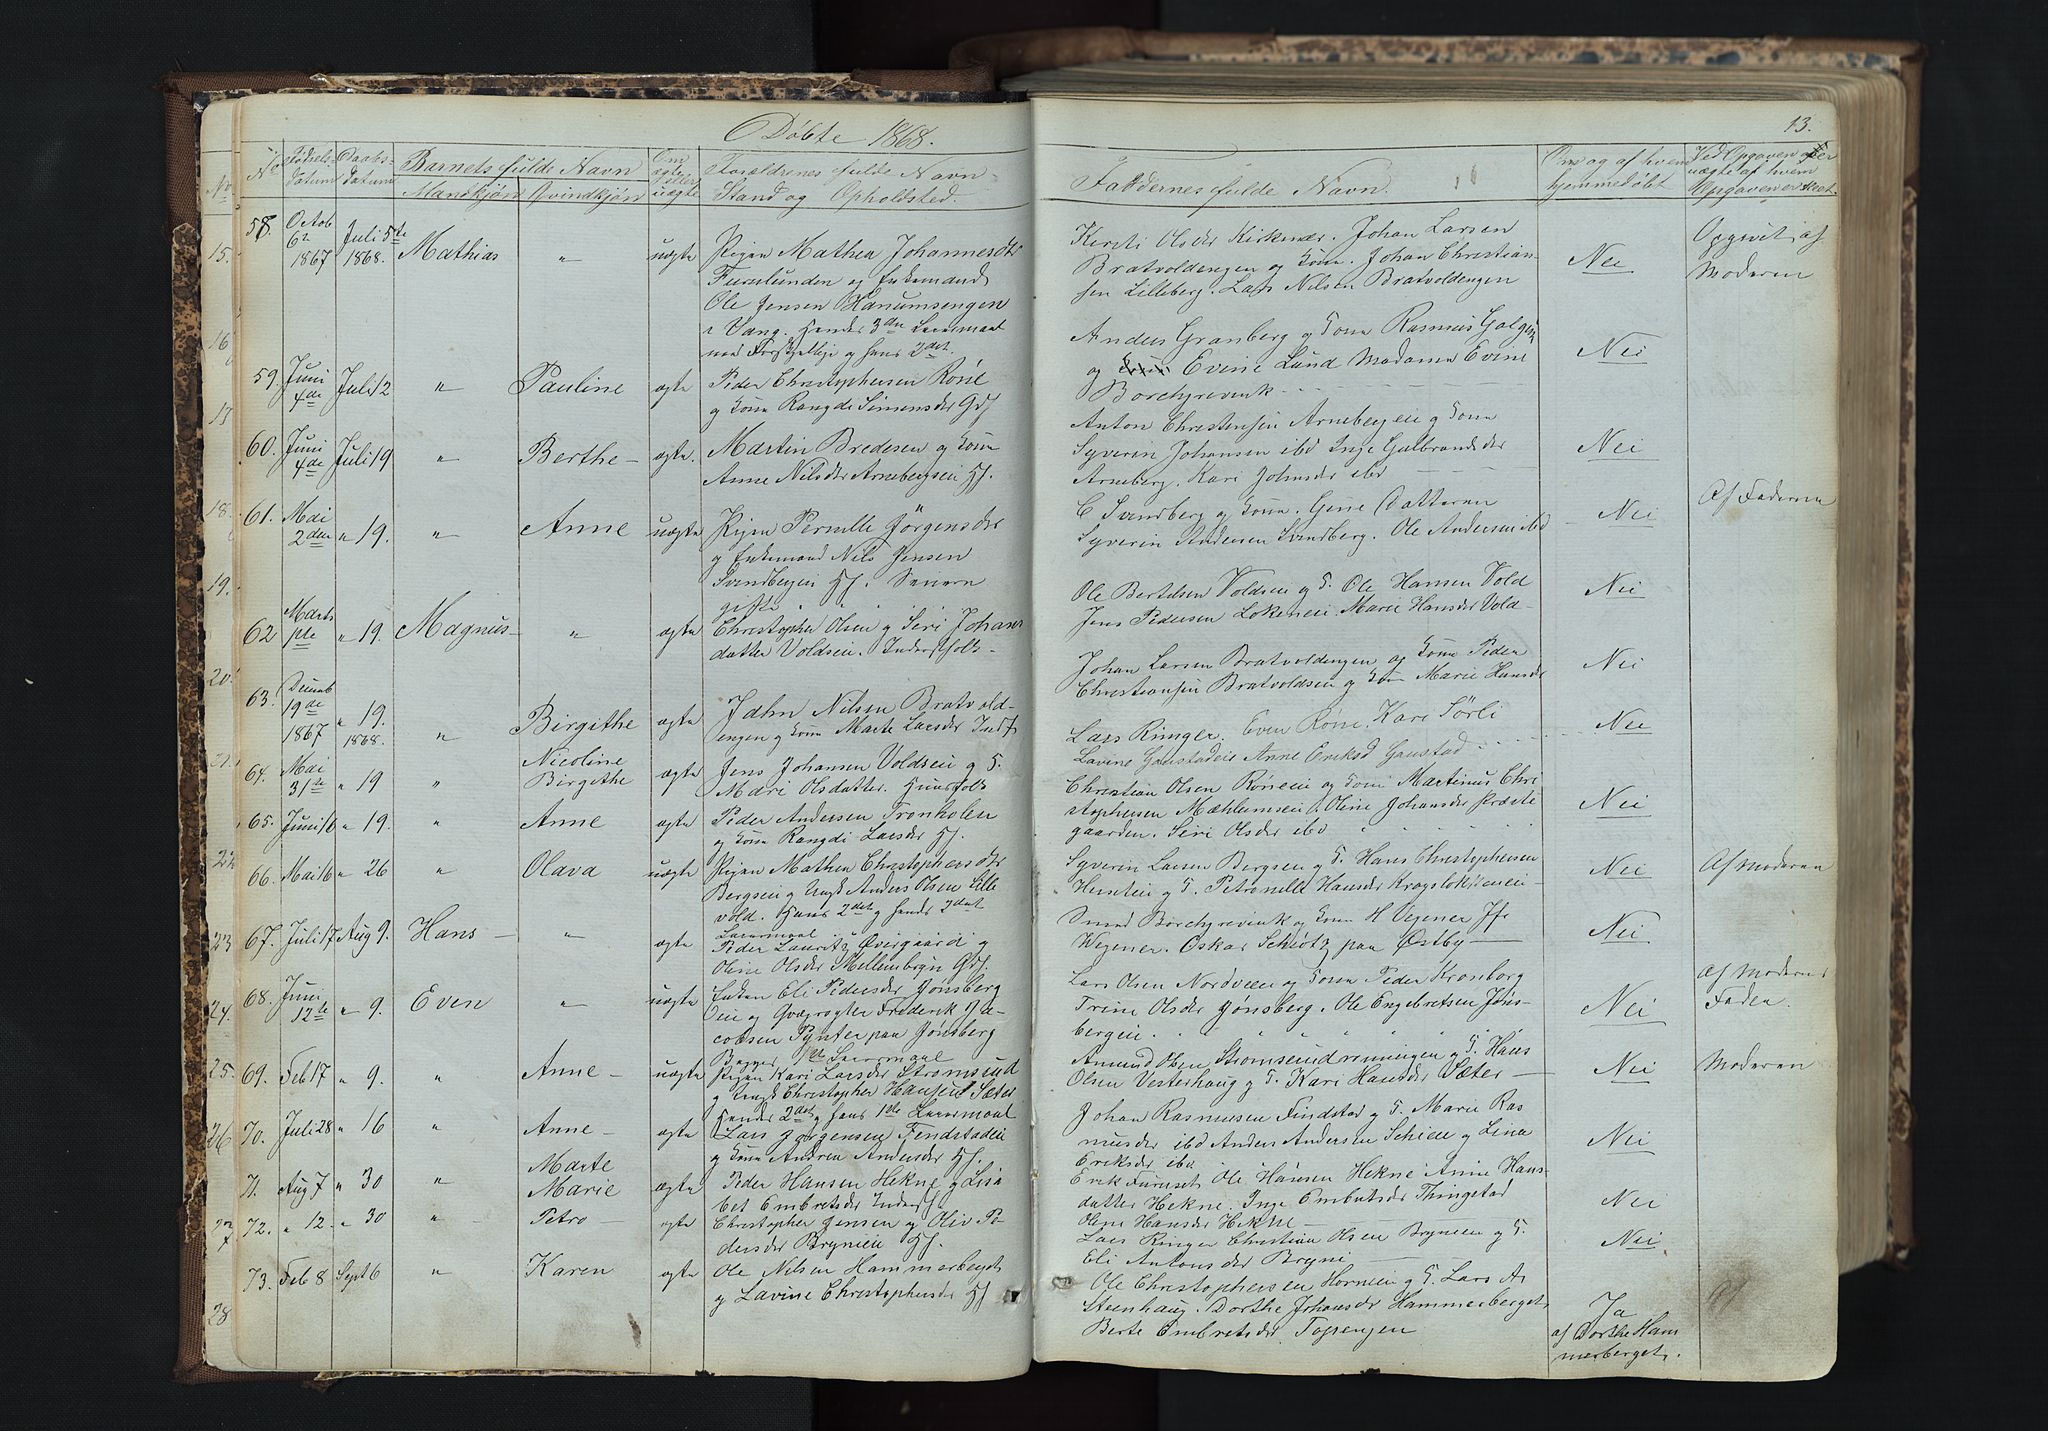 Döbte 1868.
13.
No
Fødsels-
datum
Daabs-
datum
Barnets fulde Navn
Mandkjøn
Qvindkjøn
Om
ægte
eller
uægte
Forældrenes fulde Navn
Stand og Opholdsted.
Faddernes fulde Navn.
Om og af hvem
hjemmedøbt
Ved Opgaven over
uægte af hvem
Opgaven er skeet.
58.
Octob
6te
1867
Juli 5te
1868.
Mathias
"
uægte
Pigen Mathea Johannesdr
Furulunden og Enkemand
Ole Jensen Hanumsengen
i Vang. Hendes 3die Leiermaal
med Forskjellige og hans 2det.
Kersti Olsdr Kirkenær. Johan Larsen
Bratvoldengen og Kone. Johan Christian-
sen Lilleberg. Lars Nilsen Bratvoldengen
Nei
Opgivet af
Moderen
59.
Juni
4de
Juli 12
"
Pauline
ægte
Peder Christophersen Røne
og Kone Rangdi Simensdr Gdf
Anders Granberg og Kone Rasmus Galgen
og Evine Lund Madame Evine
Borchgrevink
Nei
60.
Juni
4de
Juli 19
"
Berthe
ægte.
Martin Bredesen og Kone
Anne Nilsdr Arnebergseie Hf.
Anton Christensen Arnebergeie og Kone
Syverin Johansen ibd Inge Gulbrandsdr
Arneberg. Kari Johnsdr ibd
Nei
61.
Mai
2den
" 19.
"
Anne
uægte
Pigen Pernille Jörgensdr
og Enkemand Nils Jensen
Svendbergen Hf. Senere
gifte
C Svendberg og Kone. Gine (Datteren
Syverin Andersen Svendberg. Ole Andersen ibd
Nei
Af Faderen
62
Marts
" 19.
Magnus
"
ægte
Christopher Olsen og Siri Johans
datter Voldseie. Inderstfolk
Ole Bertelsen Voldseie og K. Ole Hansen Vold
Jens Pedersen Løkeneie. Marie Hansdr Vold
Nei
63.
Decemb
19de
1867
" 19.
1868.
"
Birgithe
ægte
John Nilsen Bratvold-
engen og Kone Marte Larsdr Indf
Johan Larsen Bratvoldengen og Kone Peder
Christiansen Bratvoldseie og Kone Marie Hansdr
Nei
64.
Mai
31te
" 19
"
Nicoline
Birgithe
ægte
Jens Johansen Voldseie og K.
Mari Olsdatter. Huusfolk
Lars Ringer. Even Röne. Kari Sörli
Lavine Gaustadeie Anne Eriksd Gaustad
Nei
65.
Juni 16
" 19.
"
Anne
ægte
Peder Andersen Tronholen
og Kone Rangdi Larsdr Hf.
Christian Olsen Röneeie og Kone Martinus Chri
stophersen Mæhlumseie. Oline Johansdr Præste
gaarden. Siri Olsdr ibd
Nei
66.
Mai 16
" 26
"
Olava
uægte
Pigen Mathea Christophersdr
Bergseie og Ungk Anders Olsen Lille
vold. Hans 2det og hendes 2det
Leiermaal
Syverin Larsen Bergseie og K. Hans Christophersen
Hersteie og K. Petronelle Hansdr Kragslokkeneie
Nei
Af Moderen
67.
Juli 17
Aug 9.
Hans
"
ægte
Peder Lauritz Övergaard og
Oline Olsdr Mellembyn Gdf.
Smed Borchgrevink og Kone H Vejener Jfr
Wejener. Oskar Schiötz paa Østby
Nei
68.
Juni
12te
" 9.
Even
"
uægte
Enken Eli Pedersdr Jönsberg
eie og Qvægrøgter Frederik Ja-
cobsen Pynter paa Jönsberg
Begges 1ste Leiermaal
Lars Olsen Nordveie og Kone Peder Kronborg
Trine Olsdr Jönsberg. Ole Engebretsen Jöns-
bergeie.
Nei
Af Moderen
Faden.
69.
Feb 17
" 9.
"
Anne
uægte
Pigen Kari Larsdr Strömsrud
og Ungk Christopher Hansen Sæter
Hendes 2det og hans 1ste Leiermaal
Amund Olsen Strømserudrønningen og K. Hans
Olsen Vesterhaug og K. Kari Hansdr Sæter
Nei
Moderen
70.
Juli 28
" 16
"
Anne
ægte
Lars Jörgensen Fendstadeie
og Kone Andrea Andersdr Hf.
Johan Rasmusen Findstad og K. Marie Ras
musdr ibd Anders Andersen Schieie og Lina
Eriksdr ibd
Nei
71.
Aug 7
" 30
"
Marte
Marie
ægte
Peder Hansen Hekne og Lisa
bet Embretsdr Inderstf
Erik Furuset Ole Hansen Hekne Anne Hans-
datter Hekne. Inge Embretsdr Thingstad
Oline Hansdr Hekne
Nei
72.
" 12
" 30
"
Petra
ægte
Christopher Jensen og Oliv Pe-
dersdr Bryneie Hf.
Lars Ringer Christian Olsen Bryneie og K.
Eli Antonsdr Bryni
Nei
73.
Feb 8
Sept 6
"
Karen
ægte
Ole Nilsen Hammerberget
og Lavine Christophersdr Hf
Ole Christophersen Horneie og K. Lars A.
Steenhaug. Dorthe Johansdr Hammerberget
Berte Embretsdr Topengen
Ja
af Dorthe Ham
merberget.
Af
15.
16
17
18.
19.
20.
21.
22
23
24.
25.
26
27
28